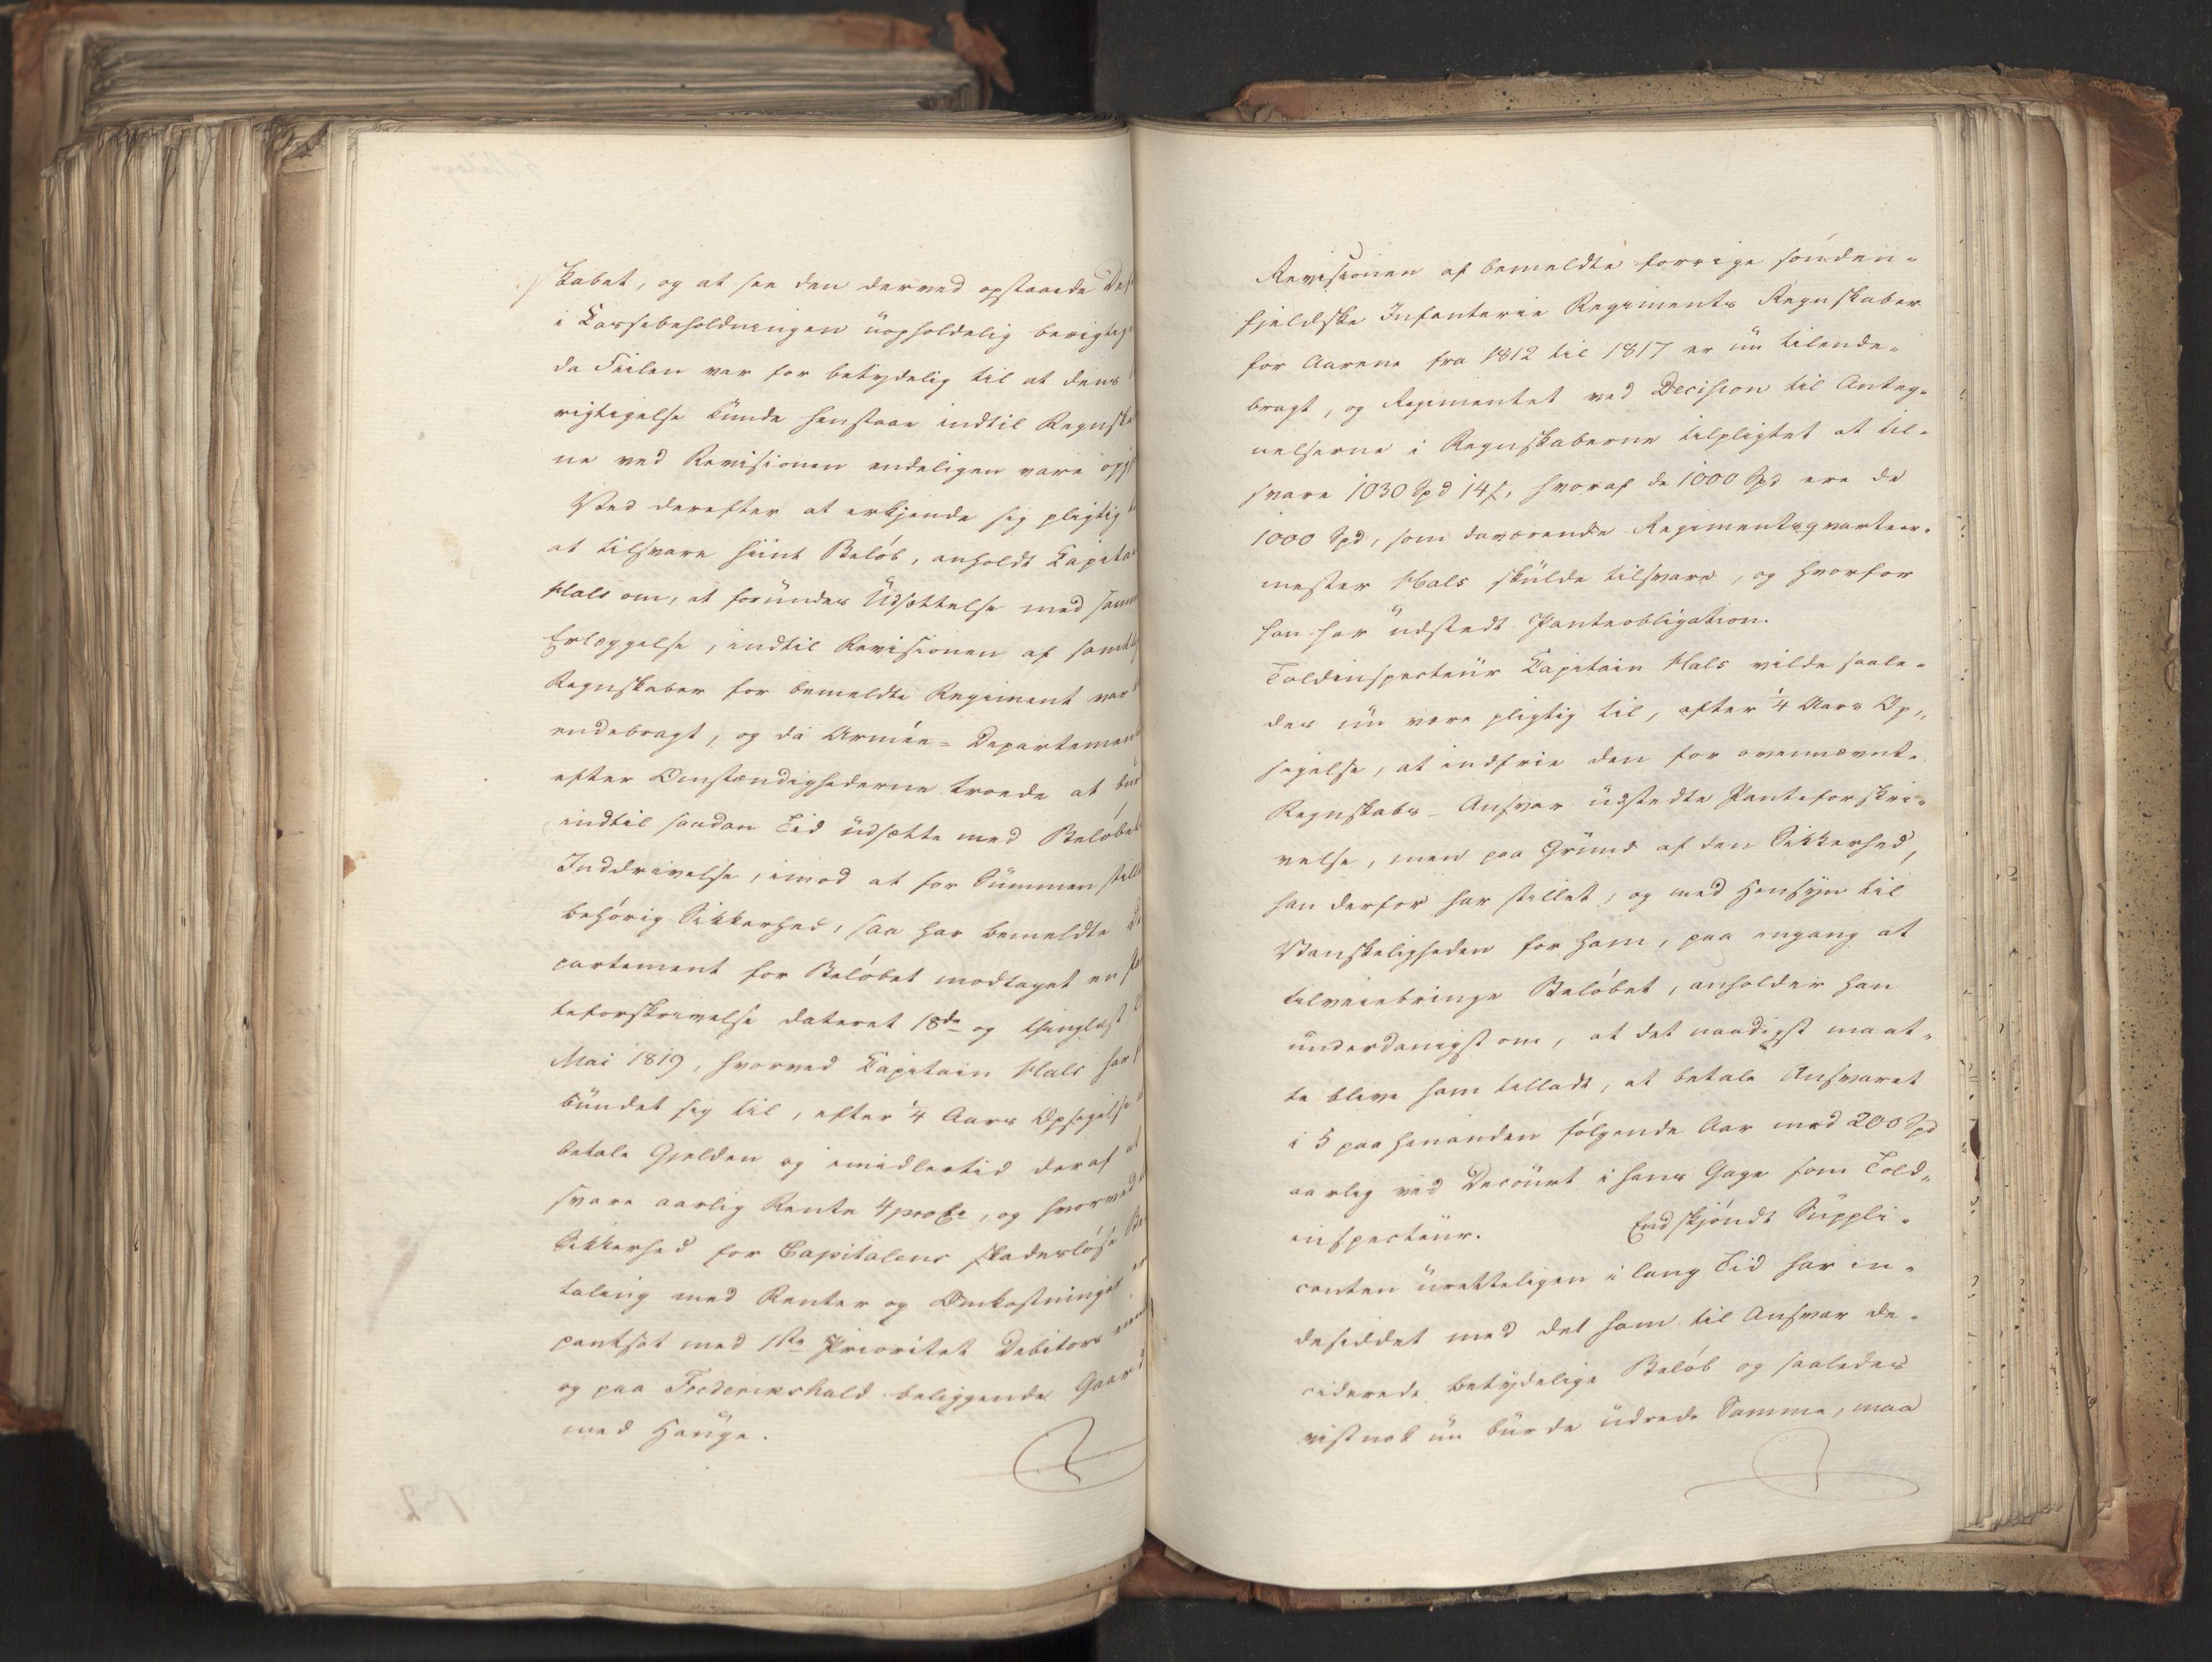 skabet, og at see den derved opstaaede Def
i Cassebeholdningen uopholdelig berigtig
da Feilen var for betydelig til at dens
rigtigelse kunde henstaae indtil Regnska
ne ved Revisionen endeligen vare opgj
Ved derefter at erkjende sig pligtig
at tilsvare hiint Beløb, anholdt Capita
Hals om, at forundes Udsættelse med samm
Erlæggelse, indtil Revisionen af samtl
Regnskaber for bemeldte Regiment var
endebragt, og da Armée-Departement
efter Omstændighederne troede at bur
indtil saadan Tid udsætte med Beløbet
Inddrivelse, imod at for Summen still
behørig Sikkerhed, saa har bemeldte De
partement for Beløbet modtaget en Pan
teforskrivelse dateret 18de og thinglæst
Mai 1819, hvorved Capitain Hals har f
bundet sig til, efter 1/4 Aars Opsigelse
betale Gjelden og imidlertid deraf at
svare aarlig Rente 4 proCt, og hvorved
Sikkerhed for Capitalens skadesløse Be
taling med Renter og Omkostninger, er
pantsat med 1ste Prioritet Debitors
og paa Frederikshald beliggende Gaard
med Hauge.
Revisionen af bemeldte forrige sønden-
fjeldske Infanterie Regiments Regnskaber
for Aarene fra 1812 til 1817 er nu tilende-
bragt, og Regimentet ved Decision til Anteg-
nelserne i Regnskaberne tilpligtet at til-
svare 1030 Spd 14 ß, hvoraf de 1000 Spd ere de
1000 Spd, som daværende Regimentsqvarteer-
mester Hals skulde tilsvare, og hvorfor
han har udstedt Panteobligation.
Toldinspecteur Capitain Hals vilde saale-
des nu være pligtig til, efter 1/4 Aars Op-
sigelse, at indfrie den for ovennævnte
Regnskabs-Ansvar udstedte Panteforskri-
velse, men paa Grund af den Sikkerhed,
han derfor har stillet, og med Hensyn til
Vanskeligheden for ham, paa engang at
tilveiebringe Beløbet, anholder han
underdanigst om, at det naadigst maat-
te blive ham tilladt, at betale Ansvaret
i 5 paa hinanden følgende Aar med 200 Spd
aarlig ved Decourt i hans Gage som Told-
inspecteur. Endskjøndt Suppli-
canten uretteligen i lang Tid har in-
desiddet med det ham til Ansvar de-
ciderede betydelige Beløb og saaledes
vistnok nu burde udrede Samme, maa